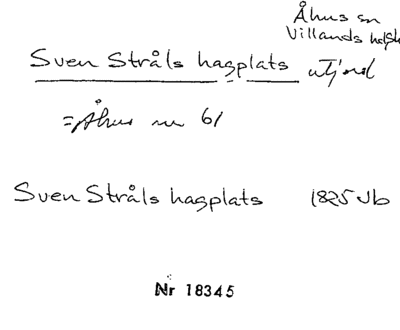 Åhus sn
Villands
Sven Stråls hagplats utjord
=Åhus nr 61
Sven Stråls hagplats 1825 Jb
Nr 18345